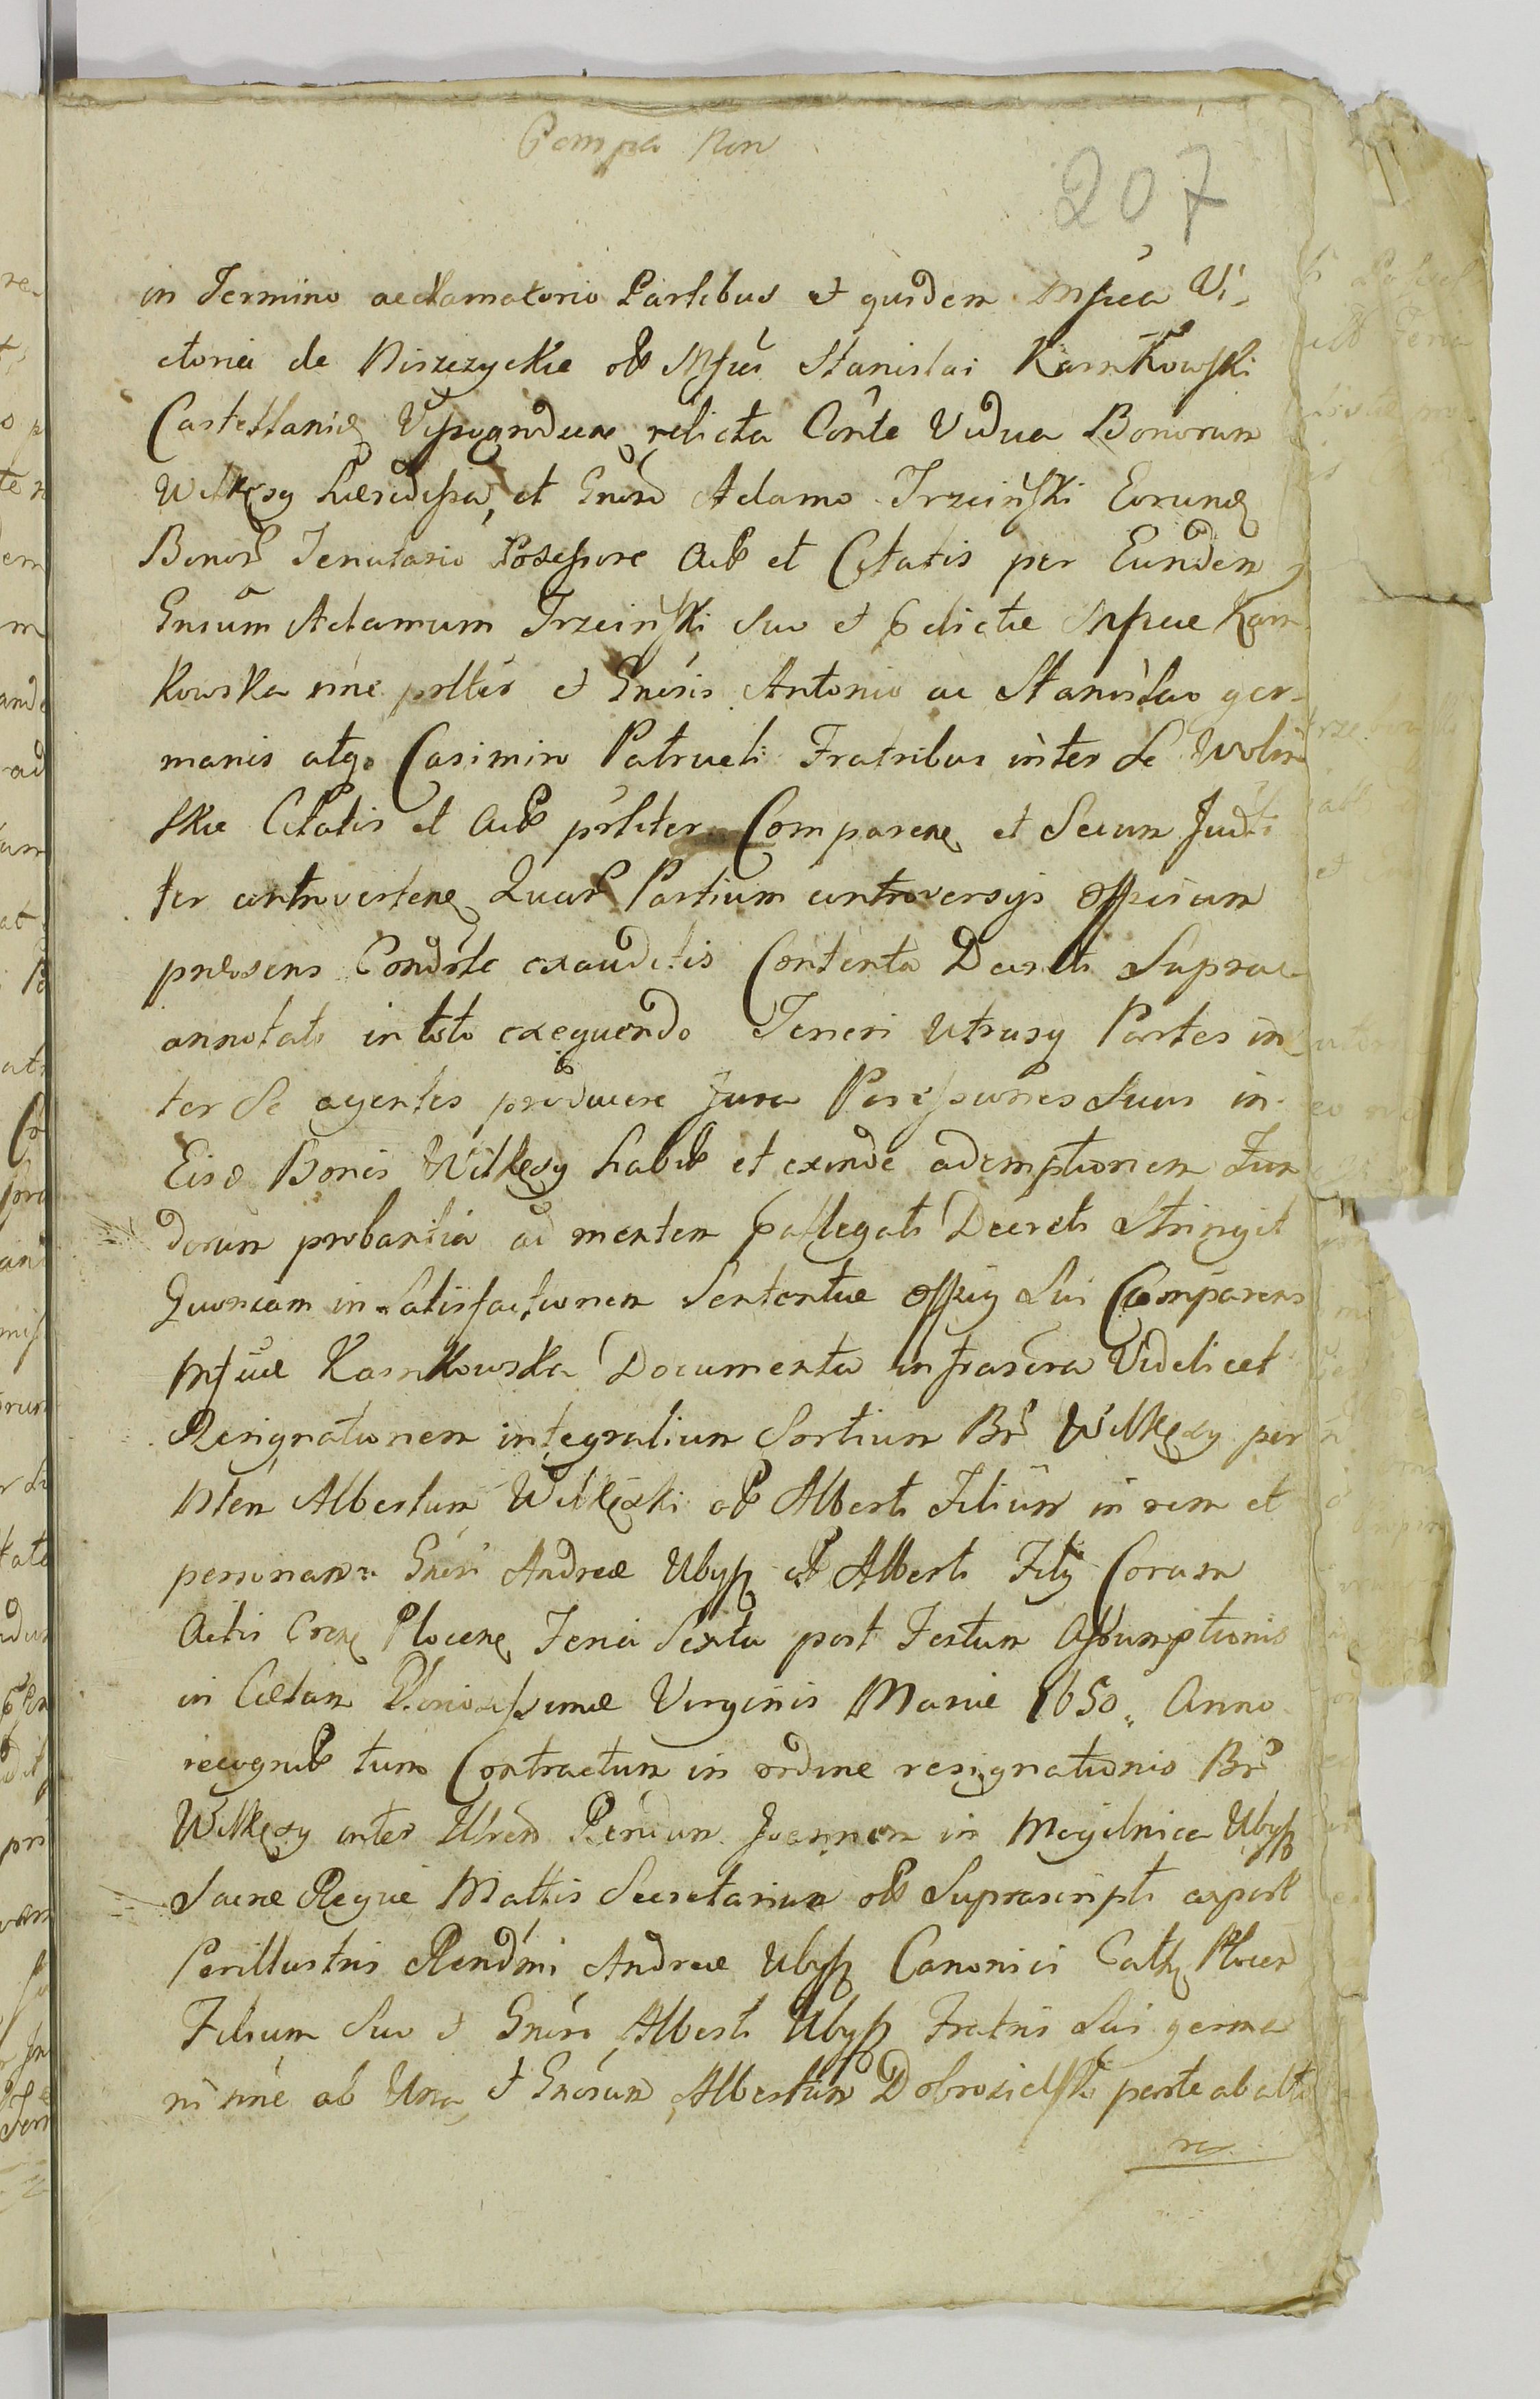 Compa Non
207
in Termino acclamatorio Partibus et quidem Mfica Vi-
ctoria de Niszczyckie ol Mfici Stanislai Karnkowski
Castellanid Vyssogrodien relicta Conte Vidua Bonorum
Wilkęsy Hæredissa, et Gnoso Adamo Trzciński Eorund
Bonor Tenutario Possessore Actb et Citatis per Eundem
Gnsum Adamum Trzciński suo et pdictæ Mficæ Karn-
kowska nine psltter et Gnosis Antonio ac Stanislao ger-
manis atq Casimiro Patrueli Fratribus inter se Woliń
skie Citatis et Actb psliter Comparen et Secum Judi
ter controverten Quar Partium controversys Officium
præsens Condigte exauditis Contenta Decreti Supra
annotati in toto exequendo Teneri utrasq Partes in
ter Se agentes producere Jura Possessiones suas in
Eisd Bonis Wilkęsy habtb et exinde ademptionem Fun
dorum probantia ad mentem pallegati Decreti Stringit
Quoniam in Satisfactionem Sententiæ Officy sui Comparens
Mficæ Karnkowska Documenta infrascra Videlicet
Resignationem integralium Sortium Br Wilkęsy per
Nlem Albertum Wilkęski ol Alberti Filium in rem et
personam Gnosi Andreæ Ubysz ol Alberti Fily Coram
Actis Cren Plocen Feria Sexta post Festum Assumptionis
in Cælum Gloriosissimæ Virginis Mariæ 1650. Anno
recognitb tum Contractum in ordine resignationis Br
Wilkęsy inter Ulrem Rendum Joannem in Mogilnica Ubysz
Sacræ Regiæ Mattis Secretarium ol Suprascripti asport
Perillustris Rendmi Andreæ Ubysz Canonici Cath Plocen
Filium Suo et Gnosi Alberti Ubysz Fratris Sui germa
ni nine ab Una, et Gnosum Albertum Dobrosielski parte ab alte
ra